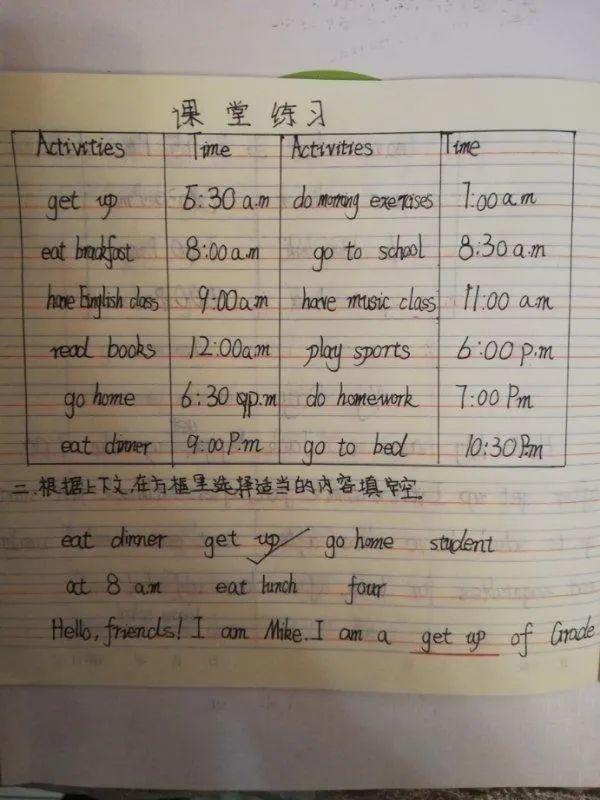 课堂练习
Activities Time Activities Time
get up 6:30 a.m do morning exercises 7:00 a.m
eat breakfast 8:00 a.m go to school 8:30 a.m
have English class 9:00 a.m have music class 11:00 a.m
read books 12:00 a.m play sports 6:00 p.m
go home 6:30 p.m do homework 7:00 Pm
eat dinner 9:00 P.m go to bed 10:30 P.m
二.根据上下文,在方框里选择适当的内容填空。
eat dinner get up go home student
at 8 a.m eat lunch four
Hello, friends! I am Mike. I am a get up of Grade